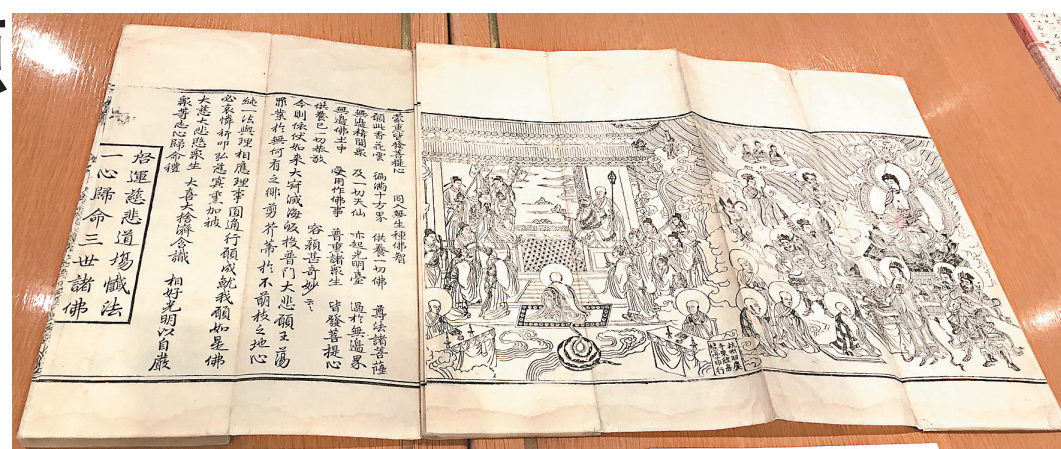 蒙熏皆發菩提心 同入無生種佛智
願此香花雲 徧滿十方界 供養一切佛 尊法諸菩薩
無邊聲聞衆 及一切天仙 亦起光明臺 過於無邊界
無邊佛土中 受用作佛事 普熏諸衆生 皆發菩提心
供養已一切恭敬 容顏甚奇妙云云
今則依伏如來大寂滅海皈投普門大悲願王蕩
罪業於無何有之鄉剪芥蒂於不萌枝之地心
純一法與理相應理事圓通行願成就我願如是佛
必哀憐祈叩弘慈冥熏加被
大慈大悲愍衆生 大喜大捨濟含識 相好光明以自嚴
衆等志心歸命禮
啓運慈悲道場懺法
一心歸命三世諸佛